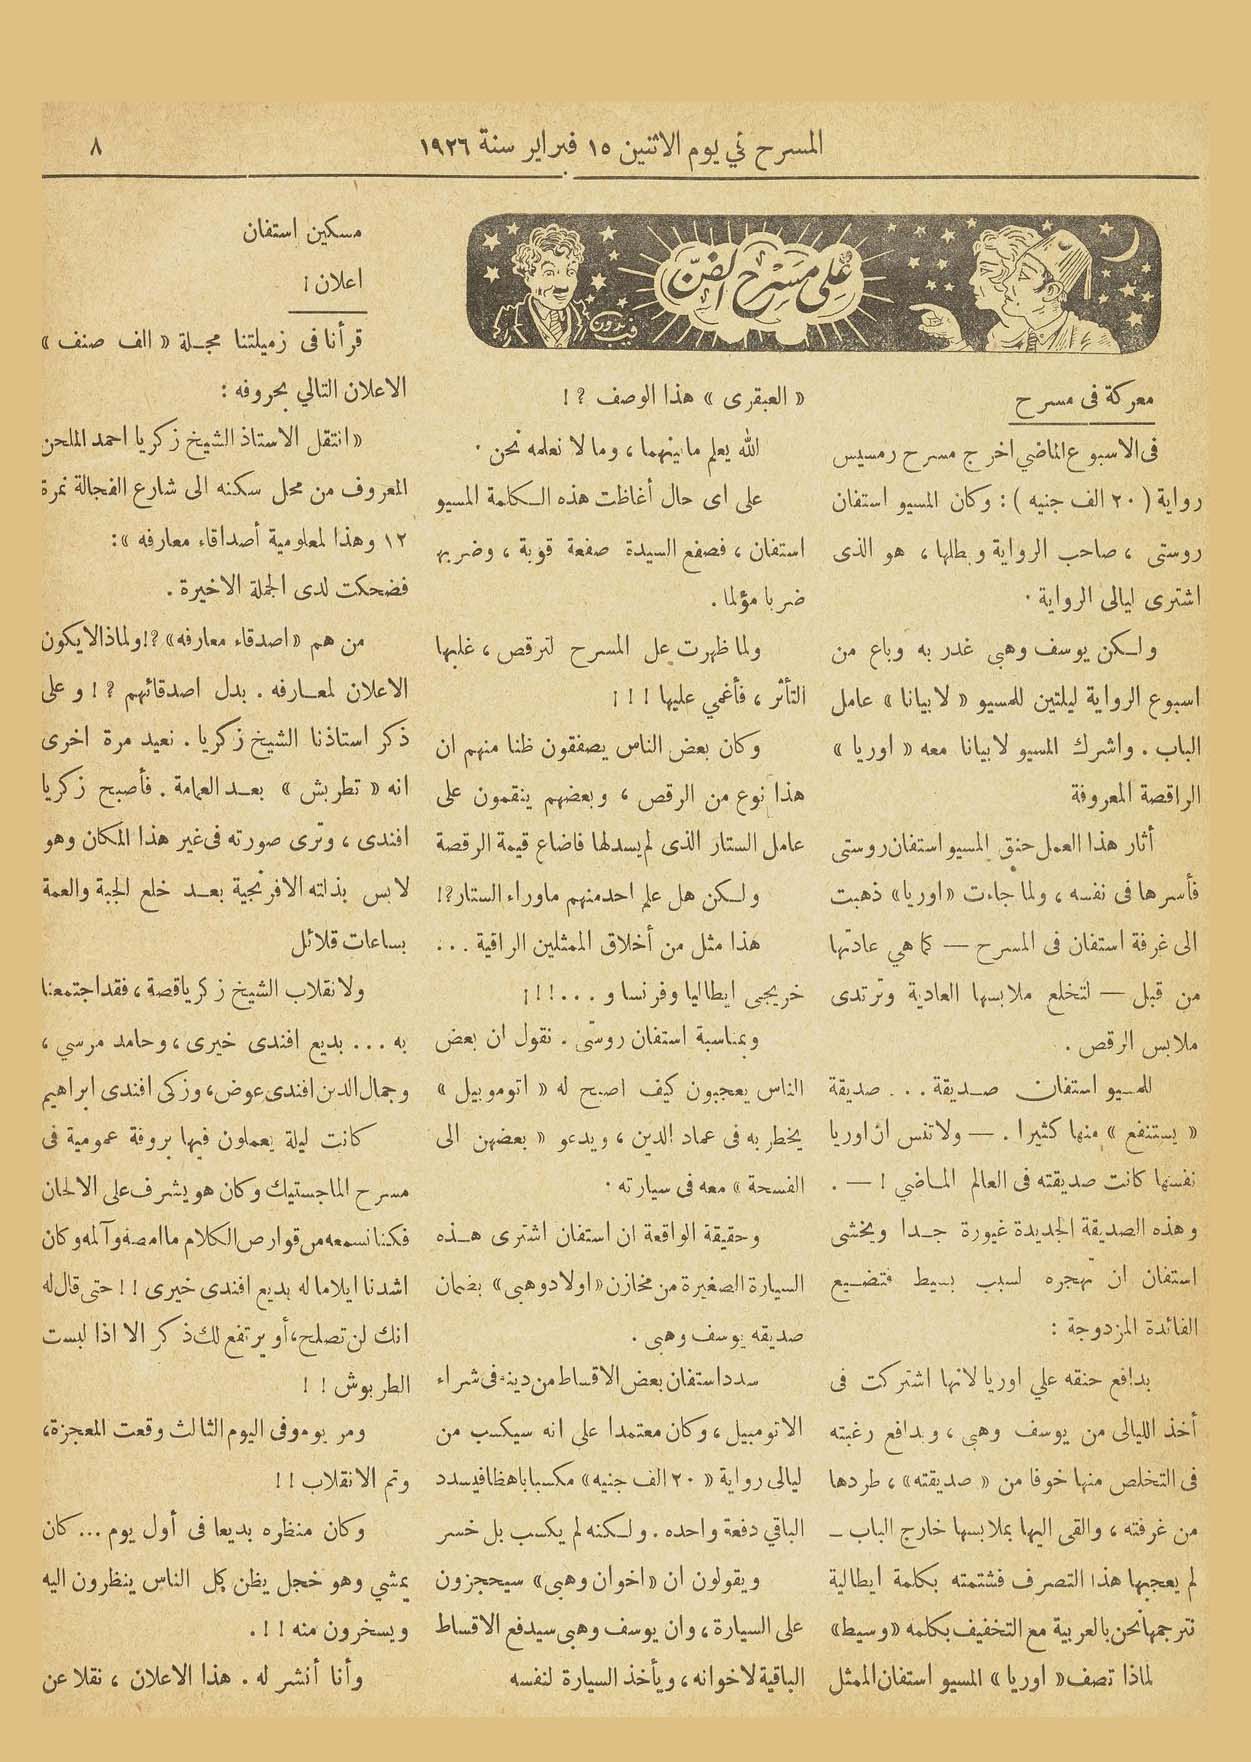 المسرح في يوم الاثنين ١٥ فبراير سنة ١٩٢٦
٨
على مسرح الفن
فيدون
معركة فى مسرح
فى الاسبوع الماضي اخرج مسرح رمسيس
رواية ( ٢٠ الف جنيه ) : وكان المسيو استفان
روستى ، صاحب الرواية وبطلها ، هو الذى
اشترى ليالى الرواية .
ولكن يوسف وهبى غدر به وباع من
اسبوع الرواية ليلتين للمسيو « لابيانا » عامل
الباب . واشرك المسيو لابيانا معه « اوريا »
الراقصة المعروفة
أثار هذا العمل حنق المسيو استفان روستى
فأسرها فى نفسه ، ولما جاءت « اوريا » ذهبت
الى غرفة استفان فى المسرح — كما هي عادتها
من قبل — لتخلع ملابسها العادية وترتدى
ملابس الرقص .
للمسيو استفان صديقة . . . صديقة
« يستنفع » منها كثيرا . — ولا تنس ان اوريا
نفسها كانت صديقته فى العالم الماضي ! — .
وهذه الصديقة الجديدة غيورة جدا ويخشى
استفان ان تهجره لسبب بسيط فتضيع
الفائدة المزدوجة :
بدافع حنقه علي اوريا لانها اشتركت فى
أخذ الليالى من يوسف وهبى ، وبدافع رغبته
فى التخلص منها خوفا من « صديقته » ، طردها
من غرفته ، والقى اليها بملابسها خارج الباب —
لم يعجبها هذا التصرف فشتمته بكلمة ايطالية
نترجمها نحن بالعربية مع التخفيف بكلمه « وسيط »
لماذا تصف « اوريا » المسيو استفان الممثل
« العبقرى » هذا الوصف ؟ !
الله يعلم ما بينهما ، وما لا نعلمه نحن .
على اى حال أغاظت هذه الكلمة المسيو
استفان ، فصفع السيدة صفعة قوبة ، وضربها
ضربا مؤلما .
ولما ظهرت عل المسرح لترقص ، غلبها
التأثر ، فأغمي عليها ! ! !
وكان بعض الناس يصفقون ظنا منهم ان
هذا نوع من الرقص ، وبعضهم ينقمون على
عامل الستار الذى لم يسدلها فاضاع قيمة الرقصة
ولكن هل علم احد منهم ماوراء الستار ؟ !
هذا مثل من أخلاق الممثلين الراقية . . .
خريجى ايطاليا وفرنسا و . . . ! ! !
وبمناسبة استفان روستى . نقول ان بعض
الناس يعجبون كيف اصبح له « اتوموبيل »
يخطر به فى عماد الدين ، ويدعو « بعضهن الى
الفسحة » معه فى سيارته .
وحقيقة الواقعة ان استفان اشترى هذه
السيارة الصغيرة من مخازن « اولاد وهبى » بضمان
صديقه يوسف وهبى .
سدد استفان بعض الاقساط من دينه فى شراء
الاتومبيل ، وكان معتمدا على انه سيكسب من
ليالى رواية « ٢٠ الف جنيه » مكسبا باهظا فيسدد
الباقي دفعة واحده . ولكنه لم يكسب بل خسر
ويقولون ان « اخوان وهبى » سيحجزون
على السيارة ، وان يوسف وهبى سيدفع الاقساط
الباقية لاخوانه ، ويأخذ السيارة لنفسه
مسكين استفان
اعلان !
قرأنا فى زميلتنا مجلة « الف صنف »
الاعلان التالي بحروفه :
« انتقل الاستاذ الشيخ زكريا احمد الملحن
المعروف من محل سكنه الى شارع الفجالة نمرة
١٢ وهذا لمعلومية أصداقاء معارفه » :
فضحكت لدى الجملة الاخيرة .
من هم « اصدقاء معارفه » ؟ ! ولماذا لايكون
الاعلان لمعارفه . بدل اصدقائهم ؟ ! وعلى
ذكر استاذنا الشيخ زكريا . نعيد مرة اخرى
انه « تطربش » بعد العمامة . فأصبح زكريا
افندى ، وترى صورته فى غير هذا المكان وهو
لابس بذلته الافرنجية بعد خلع الجبة والعمة
بساعات قلائل
ولانقلاب الشيخ زكريا قصة ، فقد اجتمعنا
به . . . بديع افندى خيرى ، وحامد مرسي ،
وجمال الدين افندى عوض ، وزكى افندى ابراهيم
كانت ليلة يعملون فيها بروفة عمومية فى
مسرح الماجستيك وكان هو يشرف على الالحان
فكنا نسمعه من قوارص الكلام ما امضه وآلمه وكان
اشدنا ايلاما له بديع افندى خيرى ! ! حتى قال له
انك لن تصلح ، أو يرتفع لك ذكر الا اذا لبست
الطربوش ! !
ومر يوم وفى اليوم الثالث وقعت المعجزة ،
وتم الانقلاب ! !
وكان منظره بديعا فى أول يوم . . . كان
يمشي وهو خجل يظن كل الناس ينظرون اليه
ويسخرون منه ! ! .
وأنا أنشر له . هذا الاعلان ، نقلا عن